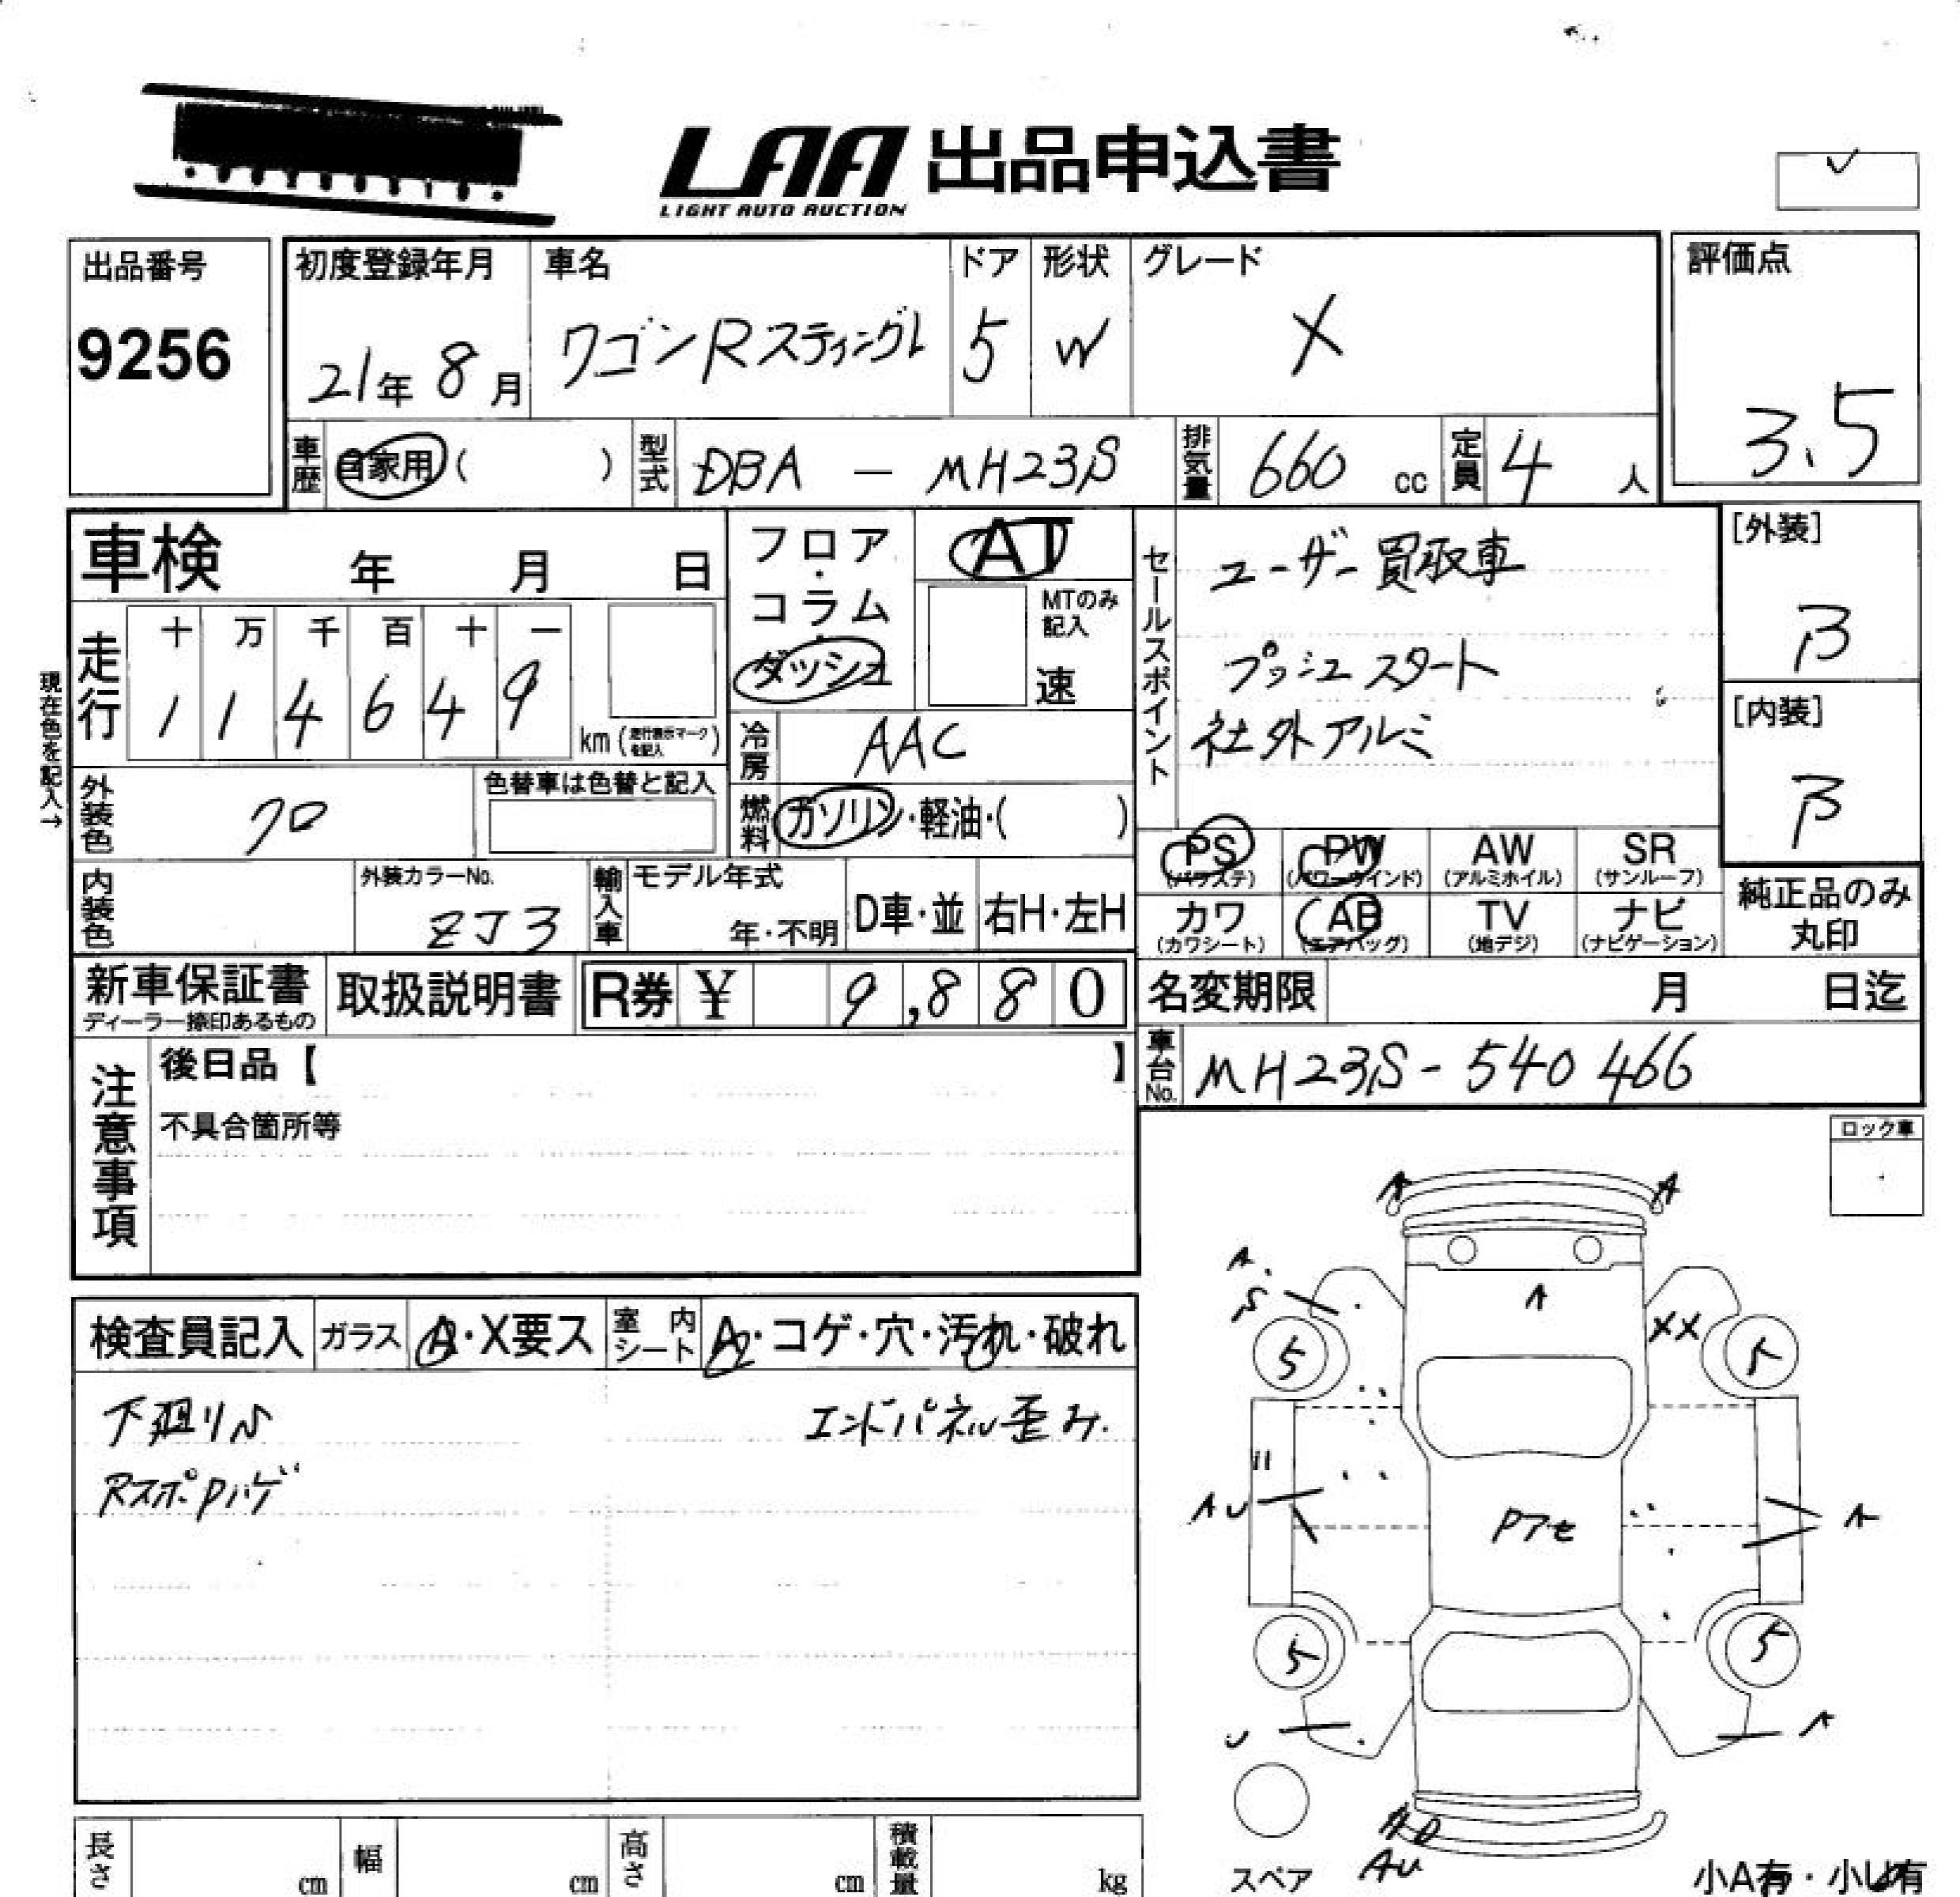 LAA 出品申込書
LIGHT AUTO AUCTION
出品番号
9256
初度登録年月
21年 8月
車名
ワゴンRスティングレ
ドア
5
形状
W
グレード
X
評価点
3.5
車歴 自家用 ( )
型式 DBA - MH23S
排気量 660 cc
定員 4 人
車検 年 月 日
フロア・コラム・ダッシュ
AT
MTのみ記入
速
セールスポイント
ユーザー買取車
プッシュスタート
社外アルミ
[外装]
B
[内装]
B
現在色を記入→
走行
十 万 千 百 十 一
1 1 4 6 4 9
km (走行表示マークを記入)
冷房 AAC
燃料 ガソリン・軽油・( )
外装色 クロ
色替車は色替と記入
内装色
外装カラーNo.
ZJ3
輸入車
モデル年式
年・不明
D車・並
右H・左H
PS (パワステ)
PW (パワーウインド)
AW (アルミホイル)
SR (サンルーフ)
カワ (カワシート)
AB (エアバッグ)
TV (地デジ)
ナビ (ナビゲーション)
純正品のみ
丸印
新車保証書
ディーラー捺印あるもの
取扱説明書
R券 ¥ 9,880
名変期限 月 日迄
車台No. MH23S-540466
注意事項
後日品【 】
不具合箇所等
ロック車
検査員記入
ガラス A・X要ス
室内シート A・コゲ・穴・汚れ・破れ
下廻りS
エンドパネル歪み.
RスポPハゲ
A
A
A
S
A
XX
5
5
AU
Pアセ
A
5
5
U
A
AU
スペア
小A有・小U有
長さ cm
幅 cm
高さ cm
積載量 kg